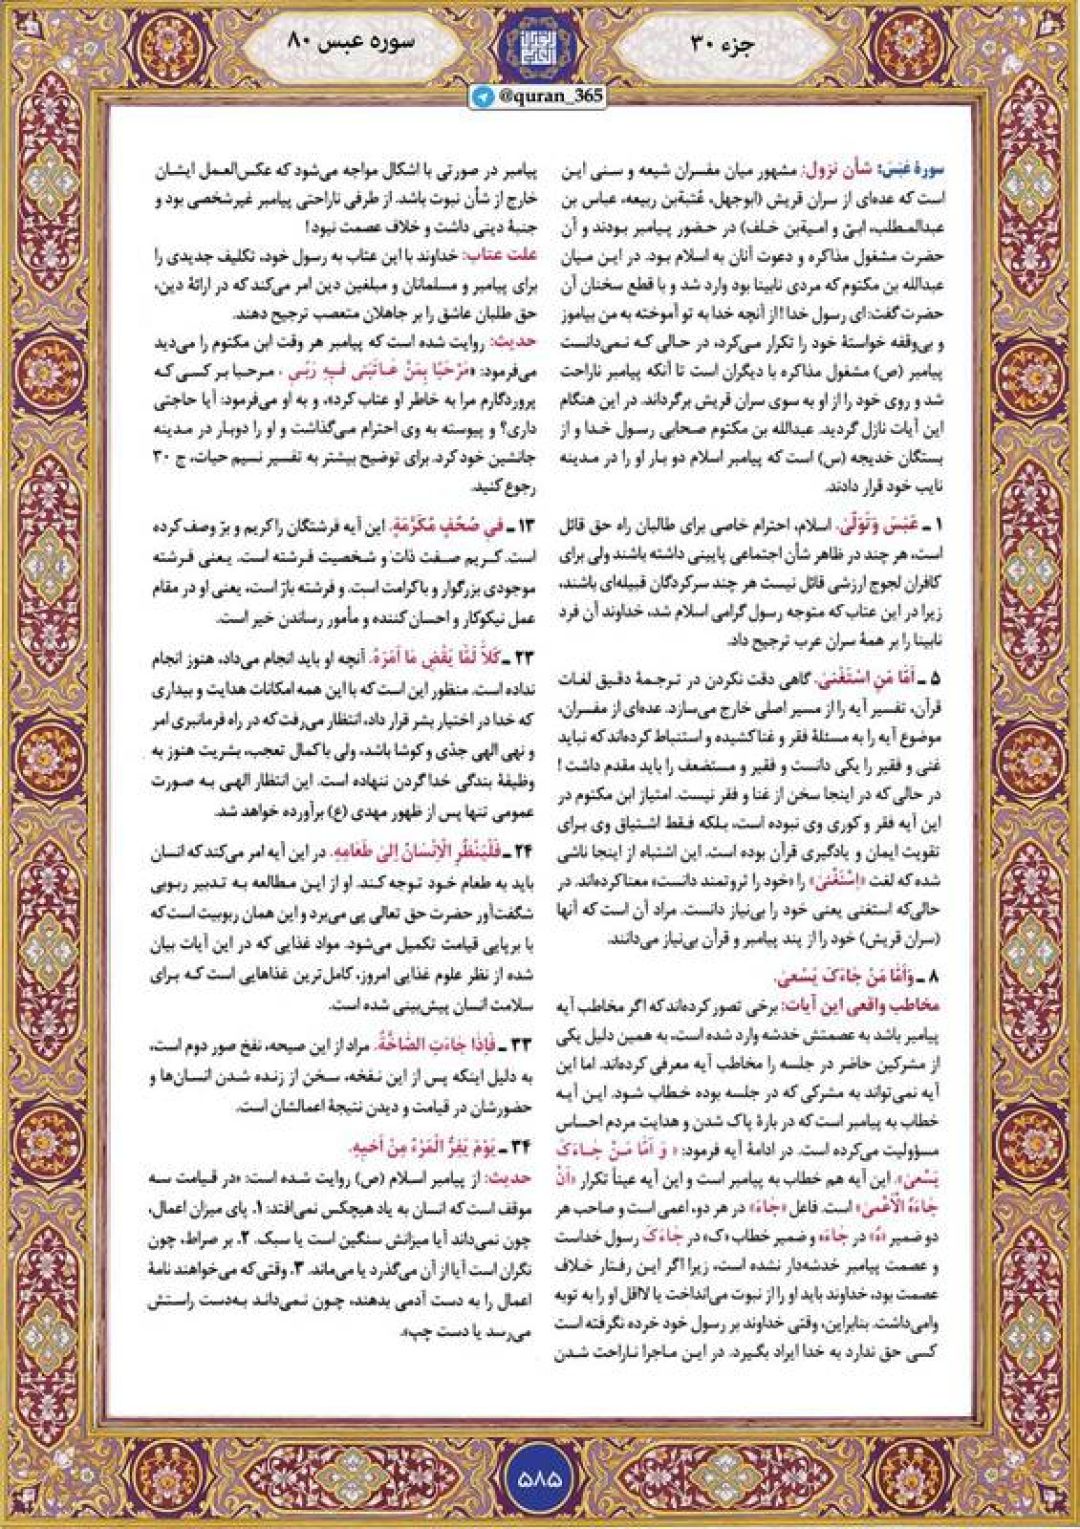 جزء ۳۰
سوره عبس ۸۰
@quran_365
سورهٔ عَبَسَ: شأن نزول: مشهور میان مفسران شیعه و سنی این
است که عده‌ای از سران قریش (ابوجهل، عُتبةبن ربیعه، عباس بن
عبدالمطلب، ابیّ و امیةبن خلف) در حضور پیامبر بودند و آن
حضرت مشغول مذاکره و دعوت آنان به اسلام بود. در این میان
عبدالله بن مکتوم که مردی نابینا بود وارد شد و با قطع سخنان آن
حضرت گفت: ای رسول خدا! از آنچه خدا به تو آموخته به من بیاموز
و بی‌وقفه خواستهٔ خود را تکرار می‌کرد، در حالی که نمی‌دانست
پیامبر (ص) مشغول مذاکره با دیگران است تا آنکه پیامبر ناراحت
شد و روی خود را از او به سوی سران قریش برگرداند. در این هنگام
این آیات نازل گردید. عبدالله بن مکتوم صحابی رسول خدا و از
بستگان خدیجه (س) است که پیامبر اسلام دو بار او را در مدینه
نایب خود قرار دادند.
۱ ـ عَبَسَ وَتَوَلّیٰ. اسلام، احترام خاصی برای طالبان راه حق قائل
است، هر چند در ظاهر شأن اجتماعی پایینی داشته باشند ولی برای
کافران لجوج ارزشی قائل نیست هر چند سرکردگان قبیله‌ای باشند،
زیرا در این عتاب که متوجه رسول گرامی اسلام شد، خداوند آن فرد
نابینا را بر همهٔ سران عرب ترجیح داد.
۵ ـ اَمَّا مَنِ اسْتَغْنیٰ. گاهی دقت نکردن در ترجمهٔ دقیق لغات
قرآن، تفسیر آیه را از مسیر اصلی خارج می‌سازد. عده‌ای از مفسران،
موضوع آیه را به مسئلهٔ فقر و غنا کشیده و استنباط کرده‌اند که نباید
غنی و فقیر را یکی دانست و فقیر و مستضعف را باید مقدم داشت!
در حالی که در اینجا سخن از غنا و فقر نیست. امتیاز ابن مکتوم در
این آیه فقر و کوری وی نبوده است، بلکه فقط اشتیاق وی برای
تقویت ایمان و یادگیری قرآن بوده است. این اشتباه از اینجا ناشی
شده که لغت «اِسْتَغْنیٰ» را «خود را ثروتمند دانست» معنا کرده‌اند. در
حالی‌که استغنی یعنی خود را بی‌نیاز دانست. مراد آن است که آنها
(سران قریش) خود را از پند پیامبر و قرآن بی‌نیاز می‌دانند.
۸ ـ وَاَمّا مَنْ جٰاءَکَ یَسْعیٰ.
مخاطب واقعی این آیات: برخی تصور کرده‌اند که اگر مخاطب آیه
پیامبر باشد به عصمتش خدشه وارد شده است، به همین دلیل یکی
از مشرکین حاضر در جلسه را مخاطب آیه معرفی کرده‌اند. اما این
آیه نمی‌تواند به مشرکی که در جلسه بوده خطاب شود. این آیه
خطاب به پیامبر است که در بارهٔ پاک شدن و هدایت مردم احساس
مسؤولیت می‌کرده است. در ادامهٔ آیه فرمود: « وَ اَمّا مَنْ جٰاءَکَ
یَسْعیٰ». این آیه هم خطاب به پیامبر است و این آیه عیناً تکرار «اَنْ
جٰاءَهُ الْاَعْمیٰ» است. فاعل «جٰاءَ» در هر دو، اعمی است و صاحب هر
دو ضمیر «هُ» در جٰاءَهُ و ضمیر خطاب «ک» در جٰاءَکَ رسول خداست
و عصمت پیامبر خدشه‌دار نشده است، زیرا اگر این رفتار خلاف
عصمت بود، خداوند باید او را از نبوت می‌انداخت یا لااقل او را به توبه
وامی‌داشت. بنابراین، وقتی خداوند بر رسول خود خرده نگرفته است
کسی حق ندارد به خدا ایراد بگیرد. در این ماجرا ناراحت شدن
پیامبر در صورتی با اشکال مواجه می‌شود که عکس‌العمل ایشان
خارج از شأن نبوت باشد. از طرفی ناراحتی پیامبر غیرشخصی بود و
جنبهٔ دینی داشت و خلاف عصمت نبود!
علت عتاب: خداوند با این عتاب به رسول خود، تکلیف جدیدی را
برای پیامبر و مسلمانان و مبلغین دین امر می‌کند که در ارائهٔ دین،
حق طلبان عاشق را بر جاهلان متعصب ترجیح دهند.
حدیث: روایت شده است که پیامبر هر وقت ابن مکتوم را می‌دید
می‌فرمود: «مَرْحَبًا بِمَنْ عٰاتَبَنی فیهِ رَبّی ، مرحبا بر کسی که
پروردگارم مرا به خاطر او عتاب کرد»، و به او می‌فرمود: آیا حاجتی
داری؟ و پیوسته به وی احترام می‌گذاشت و او را دوبار در مدینه
جانشین خود کرد. برای توضیح بیشتر به تفسیر نسیم حیات، ج ۳۰
رجوع کنید.
۱۳ ـ فی صُحُفٍ مُکَرَّمَةٍ. این آیه فرشتگان را کریم و برّ وصف کرده
است. کریم صفت ذات و شخصیت فرشته است. یعنی فرشته
موجودی بزرگوار و باکرامت است. و فرشته بارّ است، یعنی او در مقام
عمل نیکوکار و احسان کننده و مأمور رساندن خیر است.
۲۳ ـ کَلاّٰ لَمّٰا یَقْضِ مٰا اَمَرَهُ. آنچه او باید انجام می‌داد، هنوز انجام
نداده است. منظور این است که با این همه امکانات هدایت و بیداری
که خدا در اختیار بشر قرار داد، انتظار می‌رفت که در راه فرمانبری امر
و نهی الهی جدّی و کوشا باشد، ولی با کمال تعجب، بشریت هنوز به
وظیفهٔ بندگی خدا گردن ننهاده است. این انتظار الهی به صورت
عمومی تنها پس از ظهور مهدی (ع) برآورده خواهد شد.
۲۴ ـ فَلْیَنْظُرِ الْاِنْسٰانُ اِلیٰ طَعٰامِهِ. در این آیه امر می‌کند که انسان
باید به طعام خود توجه کند. او از این مطالعه به تدبیر ربوبی
شگفت‌آور حضرت حق تعالی پی می‌برد و این همان ربوبیت است که
با برپایی قیامت تکمیل می‌شود. مواد غذایی که در این آیات بیان
شده از نظر علوم غذایی امروز، کامل‌ترین غذاهایی است که برای
سلامت انسان پیش‌بینی شده است.
۳۳ ـ فَاِذٰا جٰاءَتِ الصّٰاخَّةُ. مراد از این صیحه، نفخ صور دوم است،
به دلیل اینکه پس از این نفخه، سخن از زنده شدن انسان‌ها و
حضورشان در قیامت و دیدن نتیجهٔ اعمالشان است.
۳۴ ـ یَوْمَ یَفِرُّ الْمَرْءُ مِنْ اَخیهِ.
حدیث: از پیامبر اسلام (ص) روایت شده است: «در قیامت سه
موقف است که انسان به یاد هیچکس نمی‌افتد: ۱. پای میزان اعمال،
چون نمی‌داند آیا میزانش سنگین است یا سبک. ۲. بر صراط، چون
نگران است آیا از آن می‌گذرد یا می‌ماند. ۳. وقتی که می‌خواهند نامهٔ
اعمال را به دست آدمی بدهند، چون نمی‌داند به‌دست راستش
می‌رسد یا دست چپ».
۵۸۵